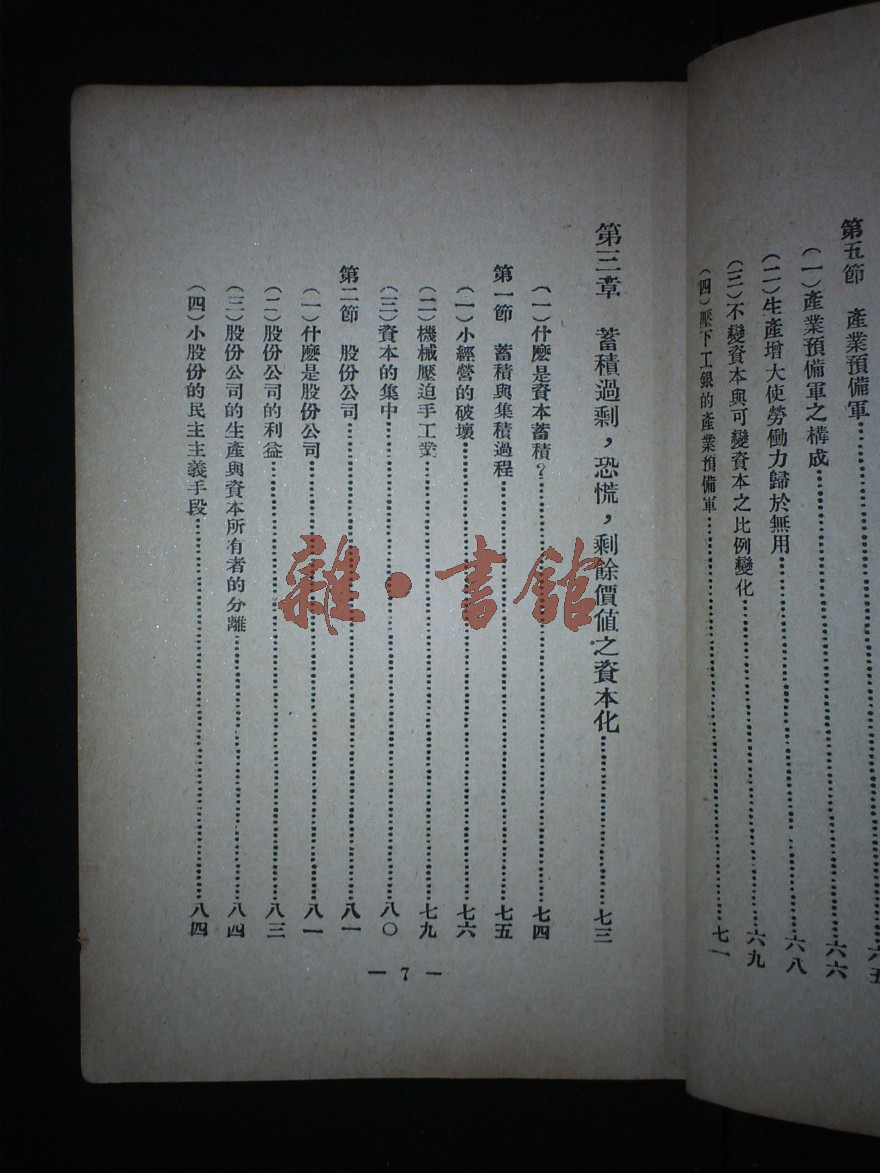 第五節　產業預備軍………六五
（一）產業預備軍之構成………六六
（二）生產增大使勞働力歸於無用………六八
（三）不變資本與可變資本之比例變化………六九
（四）壓下工銀的產業預備軍………七一
第三章　蓄積過剩，恐慌，剩餘價值之資本化………七三
（一）什麽是資本蓄積？………七四
第一節　蓄積與集積過程………七五
（一）小經營的破壞………七六
（二）機械壓迫手工業………七九
（三）資本的集中………八〇
第二節　股份公司………八一
（一）什麽是股份公司………八一
（二）股份公司的利益………八三
（三）股份公司的生產與資本所有者的分離………八四
（四）小股份的民主主義手段………八四
— 7 —
雜·書館